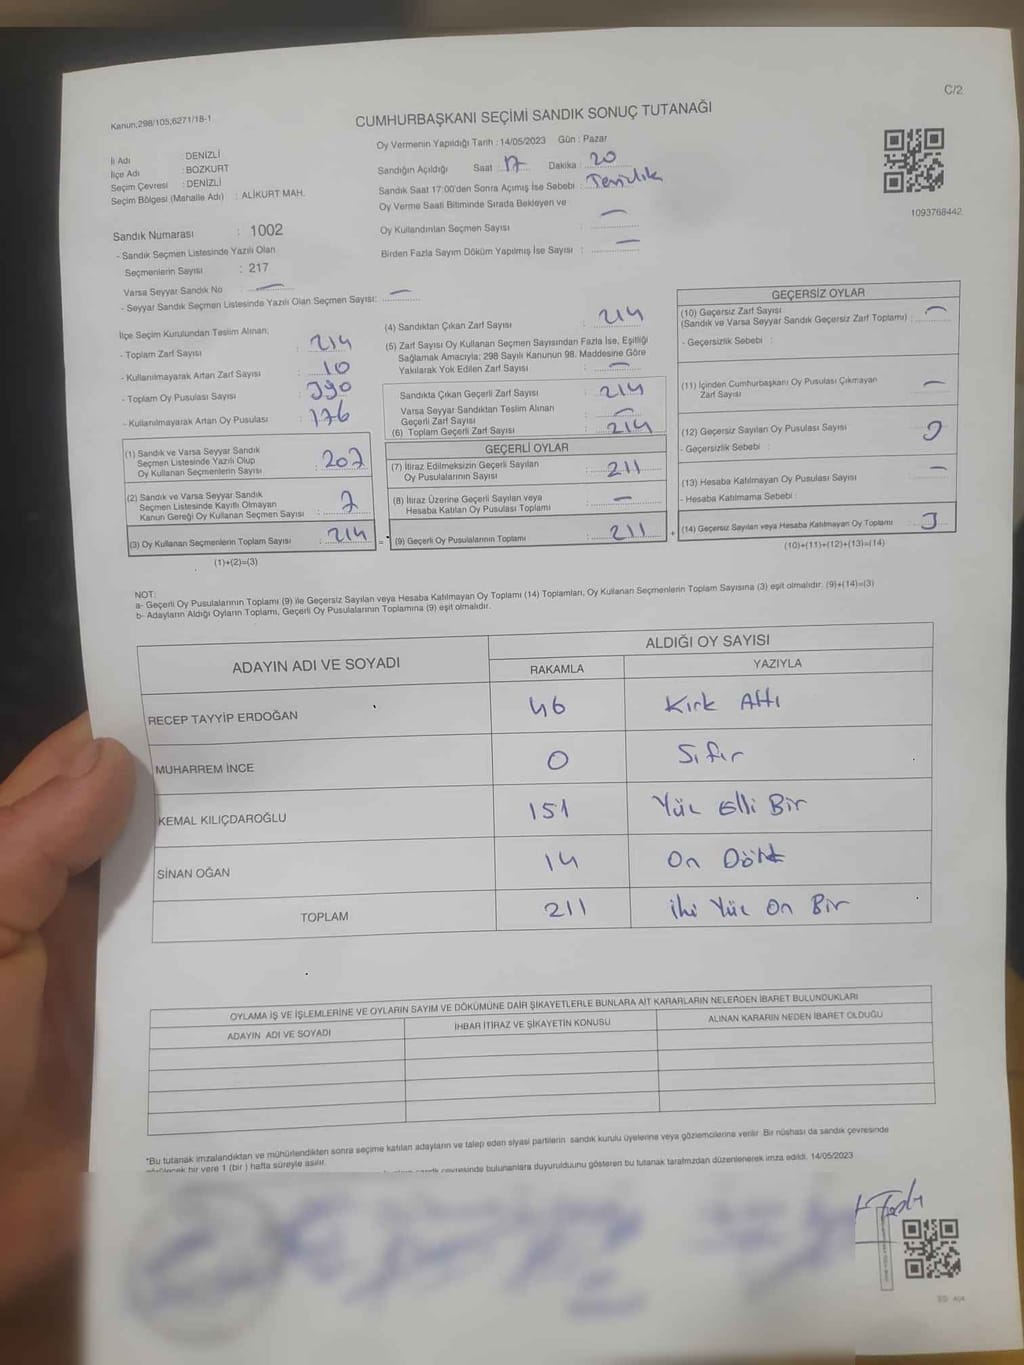 C/2
Kanun;298/105;6271/18-1
CUMHURBAŞKANI SEÇİMİ SANDIK SONUÇ TUTANAĞI
İl Adı : DENİZLİ
İlçe Adı : BOZKURT
Seçim Çevresi : DENİZLİ
Seçim Bölgesi (Mahalle Adı) : ALİKURT MAH.
Oy Vermenin Yapıldığı Tarih : 14/05/2023 Gün : Pazar
Sandığın Açıldığı Saat : 17 Dakika : 20
Sandık Saat 17:00'den Sonra Açımış İse Sebebi : Temizlik
Oy Verme Saati Bitiminde Sırada Bekleyen ve
Oy Kullandırılan Seçmen Sayısı : —
Birden Fazla Sayım Döküm Yapılmış İse Sayısı : —
1093768442
Sandık Numarası : 1002
- Sandık Seçmen Listesinde Yazılı Olan
Seçmenlerin Sayısı : 217
Varsa Seyyar Sandık No : —
- Seyyar Sandık Seçmen Listesinde Yazılı Olan Seçmen Sayısı: —
İlçe Seçim Kurulundan Teslim Alınan;
- Toplam Zarf Sayısı : 214
- Kullanılmayarak Artan Zarf Sayısı : 10
- Toplam Oy Pusulası Sayısı : 390
- Kullanılmayarak Artan Oy Pusulası : 176
(1) Sandık ve Varsa Seyyar Sandık
Seçmen Listesinde Yazılı Olup
Oy Kullanan Seçmenlerin Sayısı : 207
(2) Sandık ve Varsa Seyyar Sandık
Seçmen Listesinde Kayıtlı Olmayan
Kanun Gereği Oy Kullanan Seçmen Sayısı : 7
(3) Oy Kullanan Seçmenlerin Toplam Sayısı : 214
(1)+(2)=(3)
(4) Sandıktan Çıkan Zarf Sayısı : 214
(5) Zarf Sayısı Oy Kullanan Seçmen Sayısından Fazla İse, Eşitliği
Sağlamak Amacıyla; 298 Sayılı Kanunun 98. Maddesine Göre
Yakılarak Yok Edilen Zarf Sayısı : —
Sandıkta Çıkan Geçerli Zarf Sayısı : 214
Varsa Seyyar Sandıktan Teslim Alınan
Geçerli Zarf Sayısı : —
(6) Toplam Geçerli Zarf Sayısı : 214
GEÇERLİ OYLAR
(7) İtiraz Edilmeksizin Geçerli Sayılan
Oy Pusulalarının Sayısı : 211
(8) İtiraz Üzerine Geçerli Sayılan veya
Hesaba Katılan Oy Pusulası Toplamı : —
= (9) Geçerli Oy Pusulalarının Toplamı : 211
GEÇERSİZ OYLAR
(10) Geçersiz Zarf Sayısı
(Sandık ve Varsa Seyyar Sandık Geçersiz Zarf Toplamı) : —
- Geçersizlik Sebebi :
(11) İçinden Cumhurbaşkanı Oy Pusulası Çıkmayan
Zarf Sayısı : —
(12) Geçersiz Sayılan Oy Pusulası Sayısı : 3
- Geçersizlik Sebebi :
(13) Hesaba Katılmayan Oy Pusulası Sayısı : —
- Hesaba Katılmama Sebebi :
+ (14) Geçersiz Sayılan veya Hesaba Katılmayan Oy Toplamı : 3
(10)+(11)+(12)+(13)=(14)
NOT:
a- Geçerli Oy Pusulalarının Toplamı (9) ile Geçersiz Sayılan veya Hesaba Katılmayan Oy Toplamı (14) Toplamları, Oy Kullanan Seçmenlerin Toplam Sayısına (3) eşit olmalıdır. (9)+(14)=(3)
b- Adayların Aldığı Oyların Toplamı, Geçerli Oy Pusulalarının Toplamına (9) eşit olmalıdır.
ADAYIN ADI VE SOYADI ALDIĞI OY SAYISI
RAKAMLA YAZIYLA
RECEP TAYYİP ERDOĞAN 46 Kırk Altı
MUHARREM İNCE 0 Sıfır
KEMAL KILIÇDAROĞLU 151 Yüz Elli Bir
SİNAN OĞAN 14 On Dört
TOPLAM 211 İki Yüz On Bir
OYLAMA İŞ VE İŞLEMLERİNE VE OYLARIN SAYIM VE DÖKÜMÜNE DAİR ŞİKAYETLERLE BUNLARA AİT KARARLARIN NELERDEN İBARET BULUNDUKLARI
ADAYIN ADI VE SOYADI İHBAR İTİRAZ VE ŞİKAYETİN KONUSU ALINAN KARARIN NEDEN İBARET OLDUĞU
*Bu tutanak imzalandıktan ve mühürlendikten sonra seçime katılan adayların ve talep eden siyasi partilerin sandık kurulu üyelerine veya gözlemcilerine verilir. Bir nüshası da sandık çevresinde
bir yere 1 (bir ) hafta süreyle asılır.
çevresinde bulunanlara duyurulduunu gösteren bu tutanak tarafmzdan düzenlenerek imza edildi. 14/05/2023